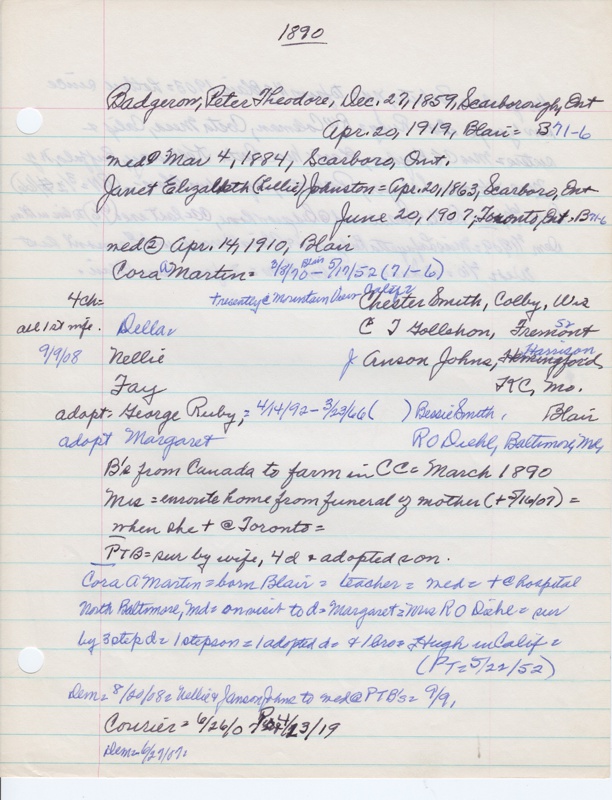 1890
Badgerow, Peter Theodore, Dec. 27, 1859, Scarborough, Ont
Apr. 20, 1919, Blair = B71-6
med① Mar 4, 1884, Scarboro, Ont.
Janet Elizabeth (Lillie) Johnston = Apr. 20, 1863, Scarboro, Ont
June 20, 1907, Toronto, Ont = B71-6
med② Apr. 14, 1910, Blair
Cora A Martin = 3/3/70 Blair - 5/17/52 (71-6)
4 ch= Chester Smith, Colby, Wis
all 1st wife. Della, C J Gollshon, Fremont
9/9/08 Nellie J Anson Johns, Hemingford, Harrison
Fay KC, Mo.
adopt - George Ruby, = 4/14/92 - 3/23/66 ( ) Bessie Smith, Blair
adopt Margaret R O Diehl, Baltimore, Md,
B's from Canada to farm in CC = March 1890
Mrs = enroute home from funeral of mother (+ 5/16/07) =
when she + @ Toronto =
PTB = sur by wife, 4 d + adopted son.
Cora A Martin = born Blair = teacher = med = + @ hospital
North Baltimore, Md = on visit to d = Margaret = Mrs R O Diehl = sur
by 3 step d = 1 stepson = 1 adopted d = + 1 bro = Hugh in Calif =
(PT = 5/22/52)
Dem = 8/20/08 = Nellie & J Anson Johns to med @ PTB's = 9/9,
Courier = 6/26/0 4/23/19
Dem = 6/27/07 =